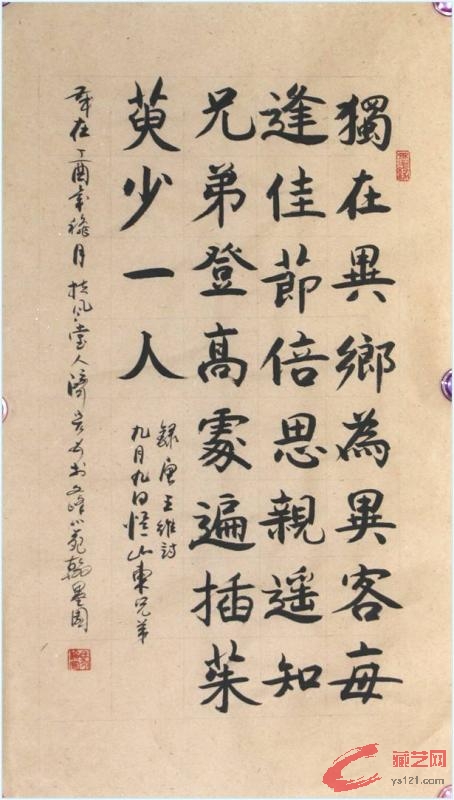 獨在異鄉為異客每
逢佳節倍思親遥知
兄弟登高處遍插茱
萸少一人
録唐王維詩
九月九日憶山東兄弟
在丁酉年穐月 扶風堂人濟 書於 翰墨園
藏艺网
ys121.com